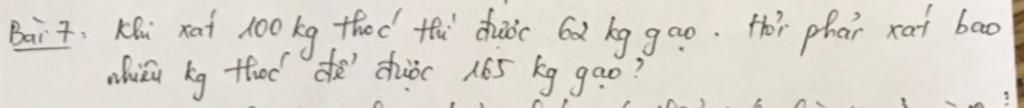 Bài 7. Khi xát 100 kg thóc thì được 62 kg gạo. Hỏi phải xát bao
nhiêu kg thóc để được 165 kg gạo?